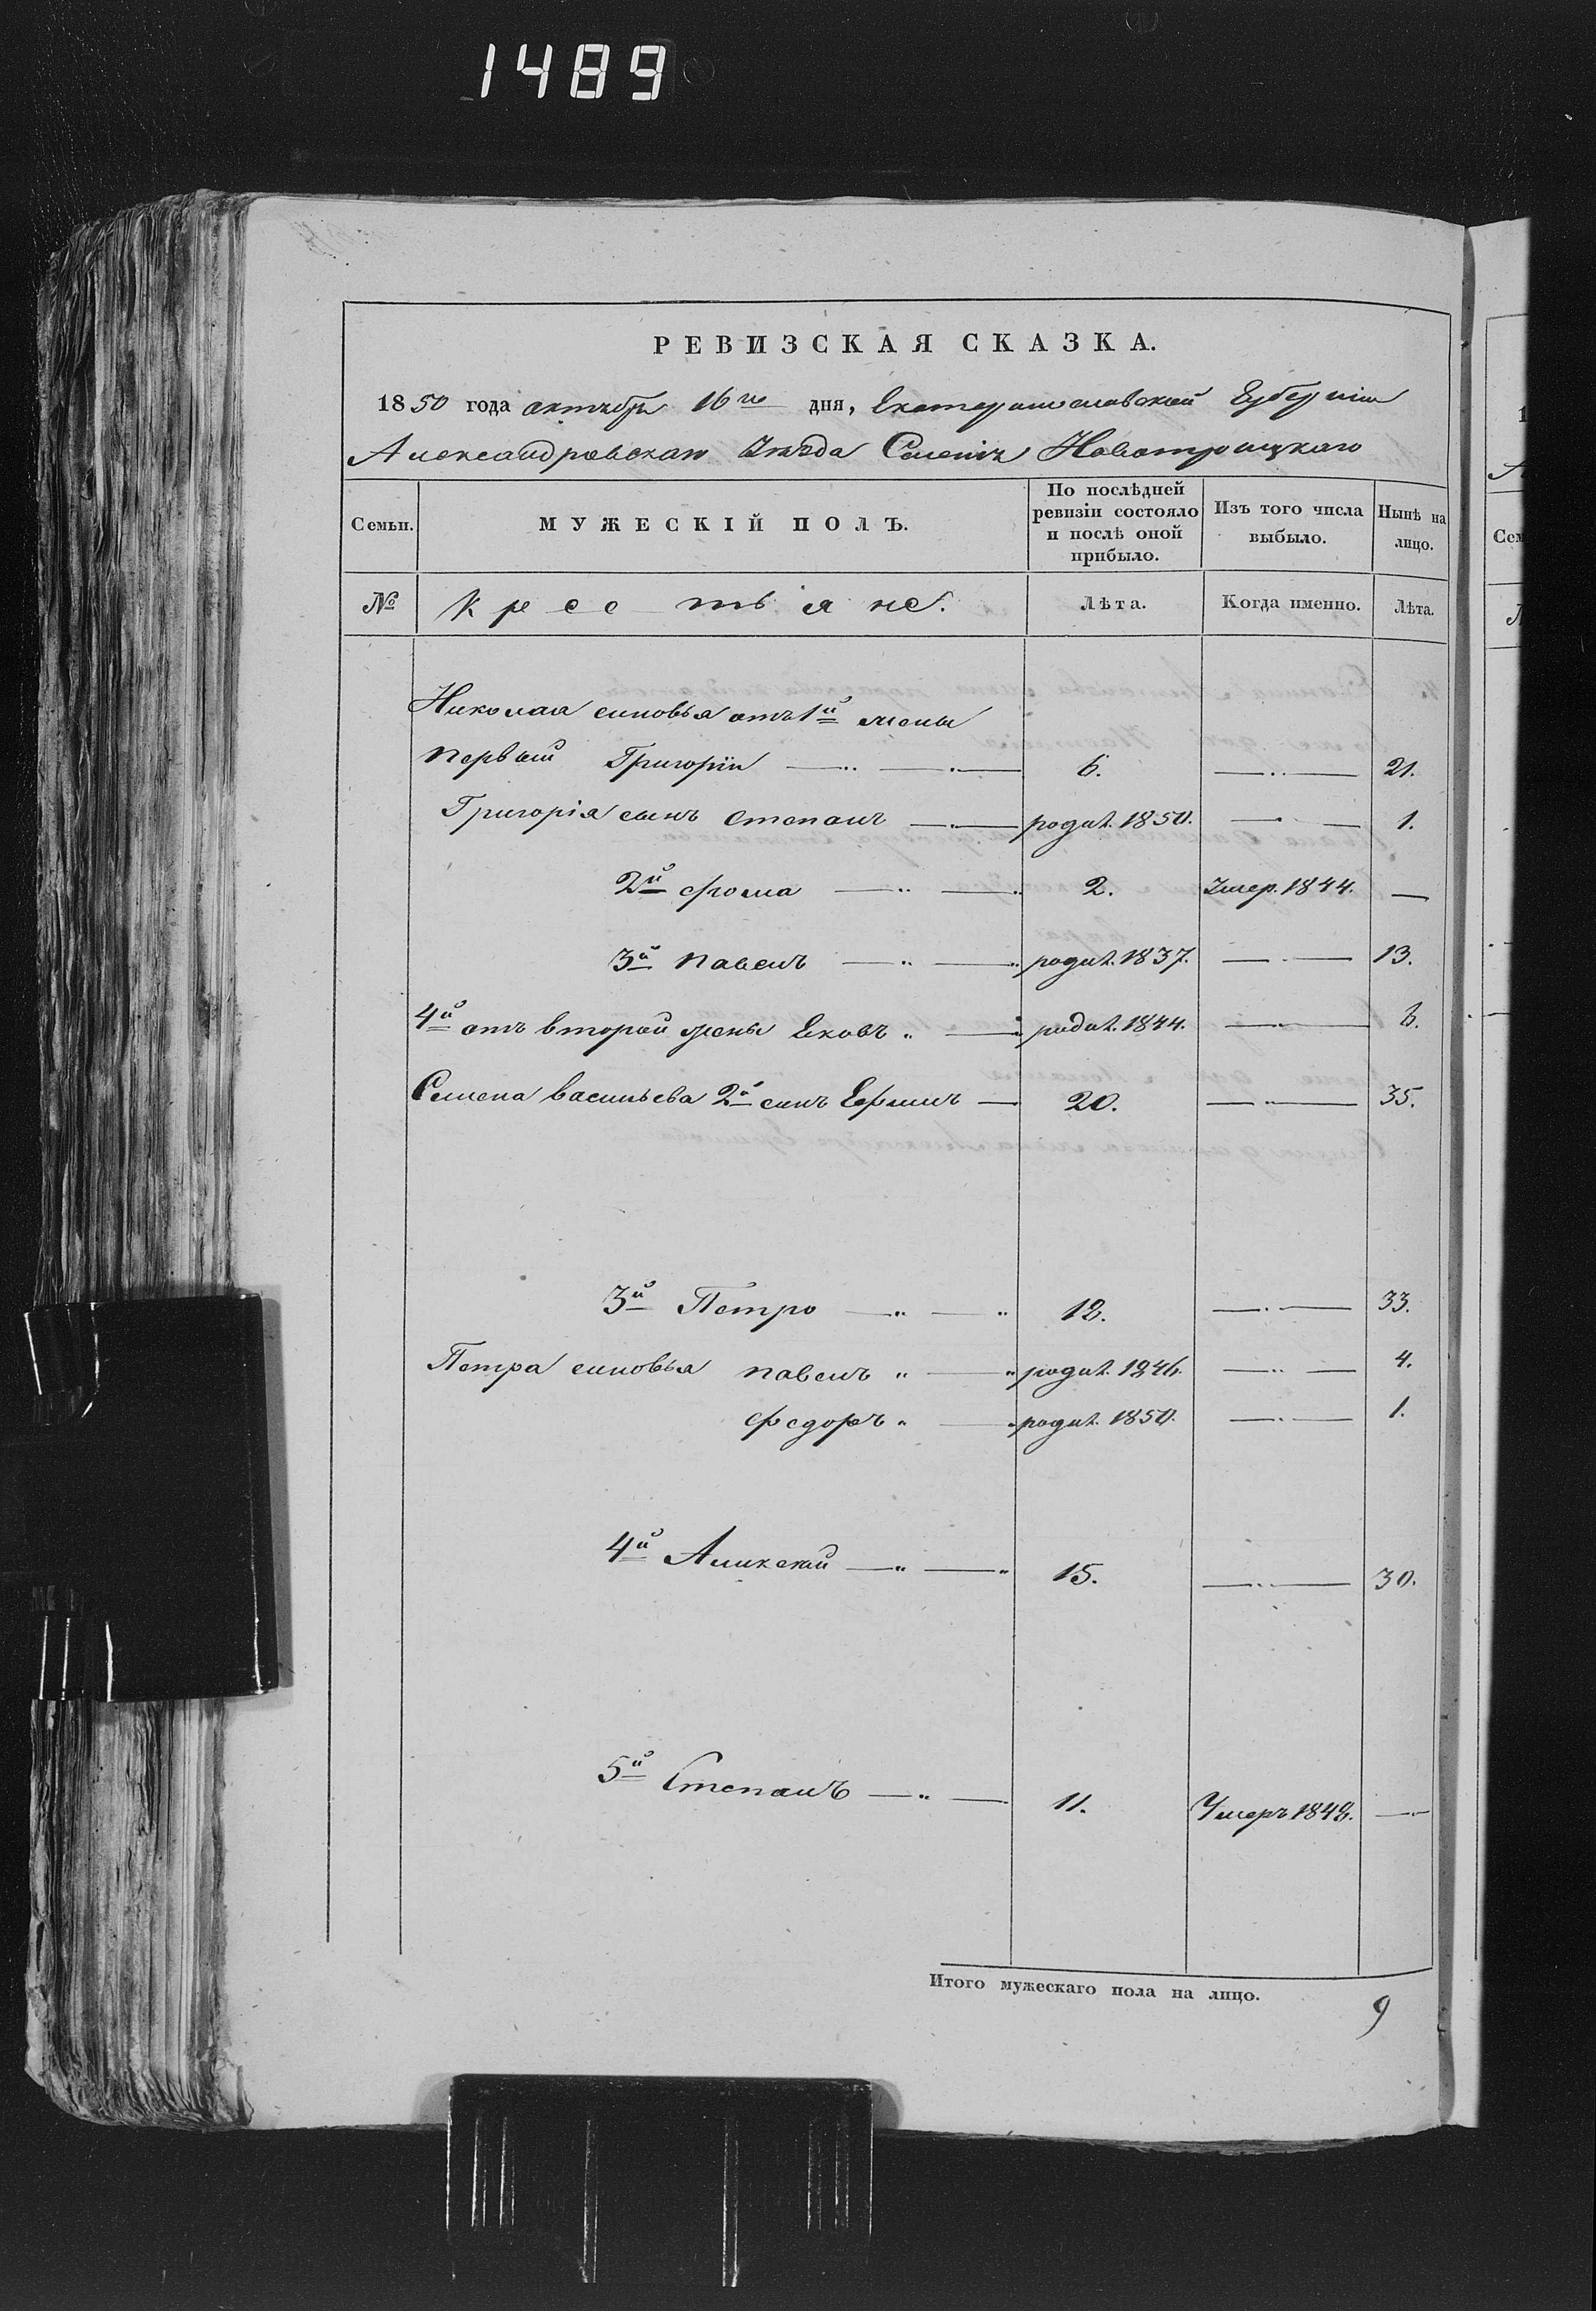 1489
РЕВИЗСКАЯ СКАЗКА.
1850 года октября 16го дня, Екатеринославской Губерніи
Александровскаго Уѣзда Селенія Новотроицкаго
Семьи. МУЖЕСКІЙ ПОЛЪ. По послѣдней ревизіи состояло и послѣ оной прибыло. Изъ того числа выбыло. Нынѣ на лицо.
№ Крестьяне. Лѣта. Когда именно. Лѣта.
Николая синовья отъ 1й жены
первый Григорій 6. 21.
Григорія сынъ Степанъ родил. 1850. 1.
2й фома 2. Умер. 1844.
3й павелъ родил. 1837. 13.
4й отъ второй женыЕковъ родил. 1844. 6.
Семена васильева 2й синъ Ефимъ 20. 35.
3й Петро 18. 33.
Петра синовья павелъ родил. 1846. 4.
федоръ родил. 1850. 1.
4й Аликсей 15. 30.
5й Степанъ 11. Умеръ 1848.
Итого мужескаго пола на лицо. 9